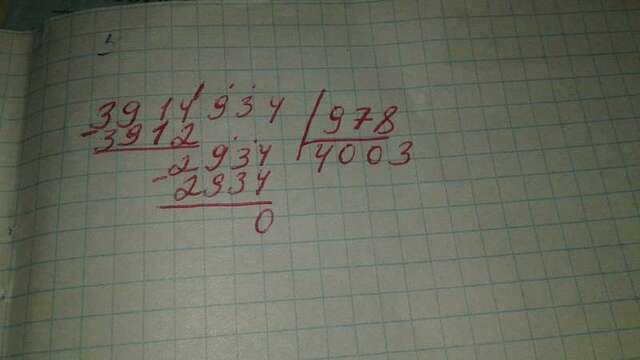 3914934 | 978
- 3912 4003
2934
- 2934
0